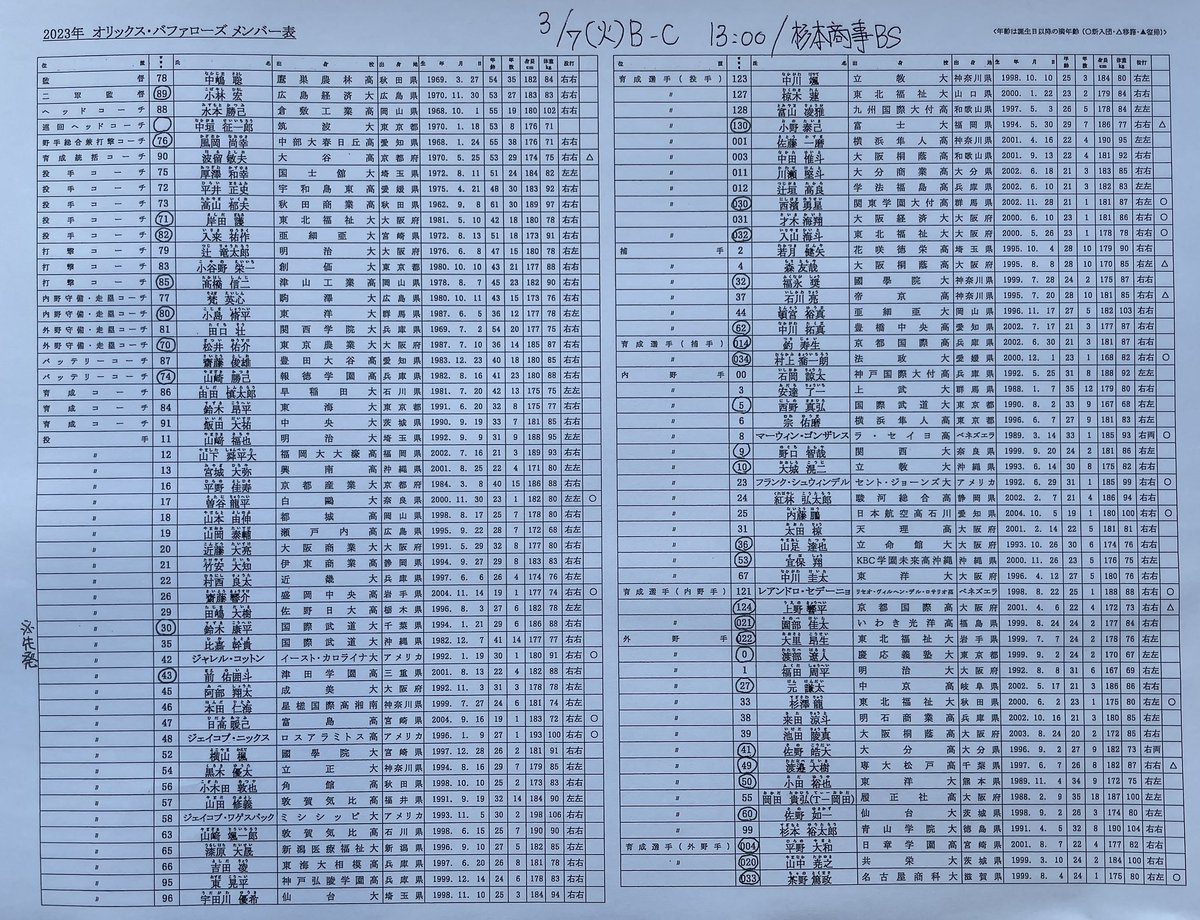 2023年 オリックス・バファローズ メンバー表
3/7(火)B-C 13:00/杉本商事BS
<年齢は誕生日以降の満年齢(○新入団・△移籍・▲復帰)>
位 置 氏 名 出身地 生年月日 年齢 年数 身長cm 体重kg 投打
監督 78 中嶋 聡 鷹巣農林高 秋田県 1969. 3. 27 54 35 182 84 右右
二軍監督 89 小林 宏 広島経済大 広島県 1970. 11. 30 53 27 183 83 右右
ヘッドコーチ 88 水本 勝己 倉敷工業高 岡山県 1968. 10. 1 55 19 180 102 右右
巡回ヘッドコーチ 中垣 征一郎 筑波大 東京都 1970. 1. 18 53 8 176 71
野手総合兼打撃コーチ 76 風岡 尚幸 中部大春日丘高 愛知県 1968. 1. 24 55 38 176 71 右右
育成統括コーチ 90 波留 敏夫 大谷高 京都府 1970. 5. 25 53 29 174 75 右右 △
投手コーチ 75 厚澤 和幸 国士舘大 埼玉県 1972. 8. 11 51 24 184 82 左左
投手コーチ 72 平井 正史 宇和島東高 愛媛県 1975. 4. 21 48 30 183 92 右右
投手コーチ 73 高山 郁夫 秋田商業高 秋田県 1962. 9. 8 61 30 189 97 右右
投手コーチ 71 岸田 護 東北福祉大 大阪府 1981. 5. 10 42 18 180 78 右右
投手コーチ 82 入来 祐作 亜細亜大 宮崎県 1972. 8. 13 51 18 173 91 右右
打撃コーチ 79 辻 竜太郎 明治大 大阪府 1976. 6. 8 47 15 180 78 右左
打撃コーチ 83 小谷野 栄一 創価大 東京都 1980. 10. 10 43 21 177 88 右右
打撃コーチ 85 高橋 信二 津山工業高 岡山県 1978. 8. 7 45 23 182 90 右右
内野守備・走塁コーチ 77 梵 英心 駒澤大 広島県 1980. 10. 11 43 15 173 76 右右
内野守備・走塁コーチ 80 小島 脩平 東洋大 群馬県 1987. 6. 5 36 12 177 78 右左
外野守備・走塁コーチ 81 田口 壮 関西学院大 兵庫県 1969. 7. 2 54 20 177 75 右右
外野守備・走塁コーチ 70 松井 佑介 東京農業大 大阪府 1987. 7. 10 36 14 185 87 右右
バッテリーコーチ 87 齋藤 俊雄 豊田大谷高 愛知県 1983. 12. 23 40 18 180 85 右右
バッテリーコーチ 74 山崎 勝己 報徳学園高 兵庫県 1982. 8. 16 41 23 180 88 右右
育成コーチ 86 由田 慎太郎 早稲田大 石川県 1981. 7. 20 42 13 175 75 左左
育成コーチ 84 鈴木 昂平 東海大 東京都 1991. 6. 20 32 8 175 77 右右
育成コーチ 91 飯田 大祐 中央大 茨城県 1990. 9. 19 33 7 181 85 右右
投手 11 山﨑 福也 明治大 埼玉県 1992. 9. 9 31 9 188 95 左左
〃 12 山下 舜平大 福岡大大濠高 福岡県 2002. 7. 16 21 3 189 93 右右
〃 13 宮城 大弥 興南高 沖縄県 2001. 8. 25 22 4 171 80 左左
〃 16 平野 佳寿 京都産業大 京都府 1984. 3. 8 40 15 186 88 右右
〃 17 曽谷 龍平 白鷗大 奈良県 2000. 11. 30 23 1 182 80 左左 ○
〃 18 山本 由伸 都城高 岡山県 1998. 8. 17 25 7 178 80 右右
〃 19 山岡 泰輔 瀬戸内高 広島県 1995. 9. 22 28 7 172 68 右左
〃 20 近藤 大亮 大阪商業大 大阪府 1991. 5. 29 32 8 177 80 右右
〃 21 竹安 大知 伊東商業高 静岡県 1994. 9. 27 29 8 183 83 右右
〃 22 村西 良太 近畿大 兵庫県 1997. 6. 6 26 4 174 76 右左
〃 26 齋藤 響介 盛岡中央高 岩手県 2004. 11. 14 19 1 177 74 右右 ○
〃 29 田嶋 大樹 佐野日大高 栃木県 1996. 8. 3 27 6 182 78 左左
〃 30 鈴木 康平 国際武道大 千葉県 1994. 1. 21 29 6 186 88 右右
〃 35 比嘉 幹貴 国際武道大 沖縄県 1982. 12. 7 41 14 177 77 右右
〃 42 ジャレル・コットン イースト・カロライナ大 アメリカ 1992. 1. 19 30 1 180 91 右右 ○
〃 43 前 佑囲斗 津田学園高 三重県 2001. 8. 13 22 4 182 88 右右
〃 45 阿部 翔太 成美大 大阪府 1992. 11. 3 31 3 178 78 右左
〃 46 本田 仁海 星槎国際高湘南 神奈川県 1999. 7. 27 24 6 181 74 右左
〃 47 日髙 暖己 富島高 宮崎県 2004. 9. 16 19 1 183 72 右左 ○
〃 48 ジェイコブ・ニックス ロスアラミトス高 アメリカ 1996. 1. 9 27 1 193 100 右右 ○
〃 52 横山 楓 國學院大 宮崎県 1997. 12. 28 26 2 181 91 右右
〃 54 黒木 優太 立正大 神奈川県 1994. 8. 16 29 7 179 85 右左
〃 56 小木田 敦也 角館高 秋田県 1998. 10. 10 25 2 173 83 右右
〃 57 山田 修義 敦賀気比高 福井県 1991. 9. 19 32 14 184 90 左左
〃 58 ジェイコブ・ワゲスパック ミシシッピ大 アメリカ 1993. 11. 5 30 2 198 106 右右
〃 63 山﨑 颯一郎 敦賀気比高 石川県 1998. 6. 15 25 7 190 90 右右
〃 65 漆原 大晟 新潟医療福祉大 新潟県 1996. 9. 10 27 5 182 85 右左
〃 66 吉田 凌 東海大相模高 兵庫県 1997. 6. 20 26 8 181 78 右右
〃 95 東 晃平 神戸弘陵学園高 兵庫県 1999. 12. 14 24 6 178 83 右右
〃 96 宇田川 優希 仙台大 埼玉県 1998. 11. 10 25 3 184 94 右右
必先発
位 置 氏 名 出身地 生年月日 年齢 年数 身長cm 体重kg 投打
育成選手(投手) 123 中川 颯 立教大 神奈川県 1998. 10. 10 25 3 184 80 右左
〃 127 椋木 蓮 東北福祉大 山口県 2000. 1. 22 23 2 178 84 右右
〃 128 富山 凌雅 九州国際大付高 和歌山県 1997. 5. 3 26 5 178 84 左左
〃 130 小野 泰己 富士大 福岡県 1994. 5. 30 29 7 186 77 右右 △
〃 001 佐藤 一磨 横浜隼人高 神奈川県 2001. 4. 16 22 4 190 95 左左
〃 003 中田 惟斗 大阪桐蔭高 和歌山県 2001. 9. 13 22 4 181 92 右右
〃 011 川瀬 堅斗 大分商業高 大分県 2002. 6. 18 21 3 183 85 右右
〃 012 辻垣 高良 学法福島高 兵庫県 2002. 6. 10 21 3 182 83 左左
〃 030 西濱 勇星 関東学園大付高 群馬県 2002. 11. 28 21 1 181 87 右左 ○
〃 031 才木 海翔 大阪経済大 大阪府 2000. 6. 10 23 1 181 86 右右 ○
〃 032 入山 海斗 東北福祉大 大阪府 2000. 5. 26 23 1 178 78 右右 ○
捕手 2 若月 健矢 花咲徳栄高 埼玉県 1995. 10. 4 28 10 179 90 右右
〃 4 森 友哉 大阪桐蔭高 大阪府 1995. 8. 8 28 10 170 85 右左 △
〃 32 福永 奨 國學院大 神奈川県 1999. 7. 28 24 2 175 87 右右
〃 37 石川 亮 帝京高 神奈川県 1995. 7. 20 28 10 181 85 右右 △
〃 44 頓宮 裕真 亜細亜大 岡山県 1996. 11. 17 27 5 182 103 右右
〃 62 中川 拓真 豊橋中央高 愛知県 2002. 7. 17 21 3 177 87 右右
育成選手(捕手) 014 釣 寿生 京都国際高 兵庫県 2002. 6. 30 21 3 183 87 右右
〃 034 村上 喬一朗 法政大 愛媛県 2000. 12. 1 23 1 168 82 右右 ○
内野手 00 石岡 諒太 神戸国際大付高 兵庫県 1992. 5. 25 31 8 188 92 左左
〃 3 安達 了一 上武大 群馬県 1988. 1. 7 35 12 179 80 右右
〃 5 西野 真弘 国際武道大 東京都 1990. 8. 2 33 9 167 68 右左
〃 6 宗 佑磨 横浜隼人高 東京都 1996. 6. 7 27 9 181 83 右左
〃 8 マーウィン・ゴンザレス ラ・セイヨ高 ベネズエラ 1989. 3. 14 33 1 185 93 右両 ○
〃 9 野口 智哉 関西大 奈良県 1999. 9. 20 24 2 181 86 右左
〃 10 大城 滉二 立教大 沖縄県 1993. 6. 14 30 8 175 82 右右
〃 23 フランク・シュウィンデル セント・ジョーンズ大 アメリカ 1992. 6. 29 31 1 185 99 右右 ○
〃 24 紅林 弘太郎 駿河総合高 静岡県 2002. 2. 7 21 4 186 94 右右
〃 25 内藤 鵬 日本航空高石川 愛知県 2004. 10. 5 19 1 180 100 右右 ○
〃 31 太田 椋 天理高 大阪府 2001. 2. 14 22 5 181 81 右右
〃 36 山足 達也 立命館大 大阪府 1993. 10. 26 30 6 174 76 右右
〃 53 宜保 翔 KBC学園未来高沖縄 沖縄県 2000. 11. 26 23 5 176 75 右左
〃 67 中川 圭太 東洋大 大阪府 1996. 4. 12 27 5 180 76 右右
育成選手(内野手) 121 レアンドロ・セデーニョ リセオ・ヴィルヘン・デル・ロサリオ高 ベネズエラ 1998. 8. 22 25 1 188 88 右右 ○
〃 124 上野 響平 京都国際高 大阪府 2001. 4. 6 22 4 172 73 右右 △
〃 021 園部 佳太 いわき光洋高 福島県 1999. 8. 24 24 2 177 84 右右
外野手 022 大里 昂生 東北福祉大 岩手県 1999. 7. 7 24 2 178 76 右左
〃 0 渡部 遼人 慶応義塾大 東京都 1999. 9. 2 24 2 170 67 左左
〃 1 福田 周平 明治大 大阪府 1992. 8. 8 31 6 167 69 右左
〃 27 元 謙太 中京高 岐阜県 2002. 5. 17 21 3 186 86 右右
〃 33 杉澤 龍 東北福祉大 秋田県 2000. 6. 2 23 1 175 80 右左 ○
〃 38 来田 涼斗 明石商業高 兵庫県 2002. 10. 16 21 3 180 85 右左
〃 39 池田 陵真 大阪桐蔭高 大阪府 2003. 8. 24 20 2 172 85 右右
〃 41 佐野 皓大 大分高 大分県 1996. 9. 2 27 9 182 73 右両
〃 49 渡邉 大樹 専大松戸高 千葉県 1997. 6. 7 26 8 182 87 右右 △
〃 50 小田 裕也 東洋大 熊本県 1989. 11. 4 34 9 172 75 右左
〃 55 岡田 貴弘(T-岡田) 履正社高 大阪府 1988. 2. 9 35 18 187 100 左左
〃 60 佐野 如一 仙台大 茨城県 1998. 9. 2 26 3 174 80 右左
〃 99 杉本 裕太郎 青山学院大 徳島県 1991. 4. 5 32 8 190 104 右右
育成選手(外野手) 004 平野 大和 日章学園高 宮崎県 2001. 8. 7 22 4 177 82 右右
〃 020 山中 尭之 共栄大 茨城県 1999. 3. 10 24 2 184 100 右左
〃 033 茶野 篤政 名古屋商科大 滋賀県 1999. 8. 4 24 1 175 80 右左 ○